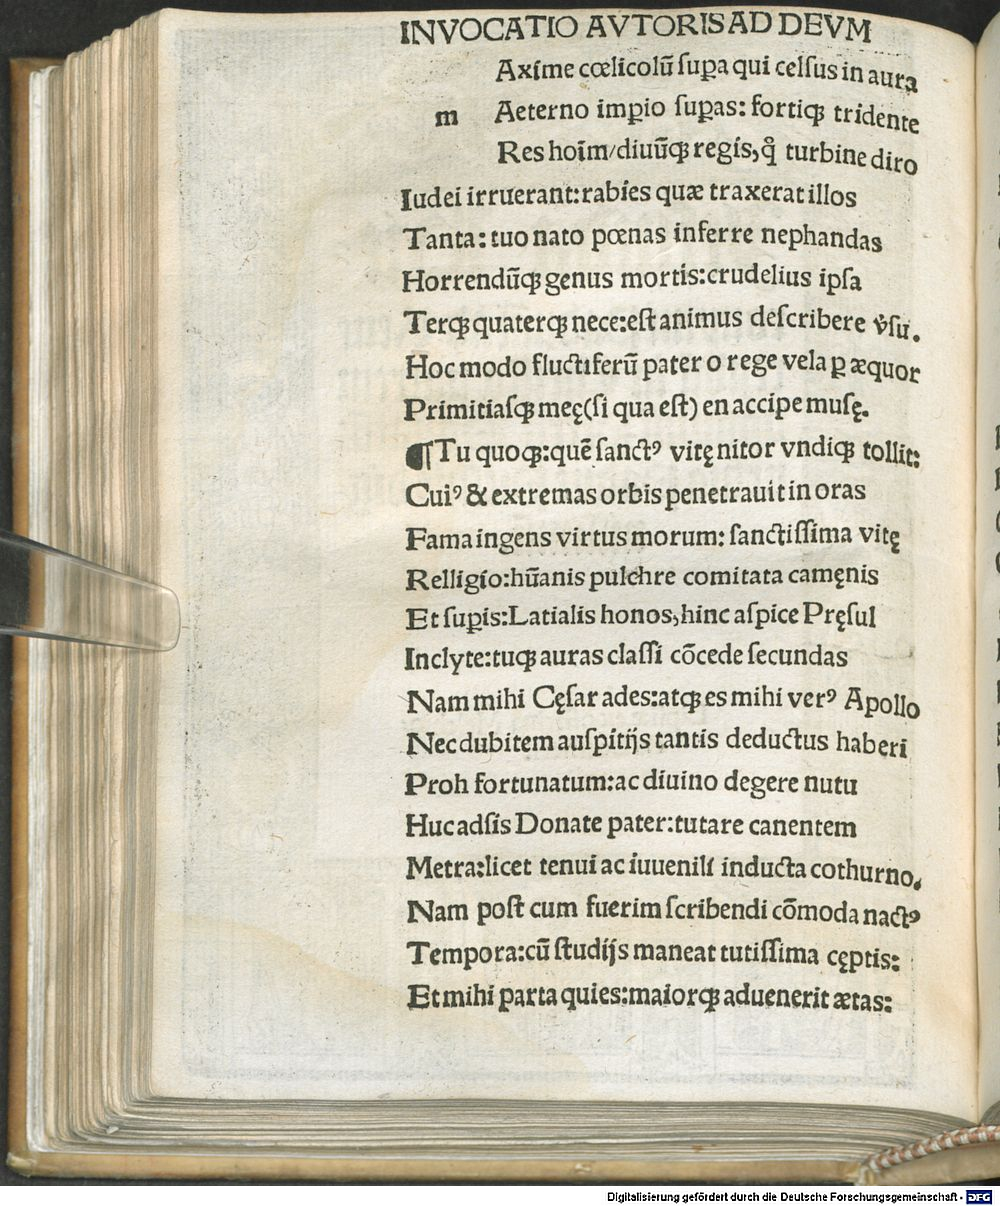 INVOCATIO AVTORIS AD DEVM
m Axime cœlicolū ſuꝑa qui celſus in aura
Aeterno impio ſuꝑas: fortiqꝫ tridente
Res hoīm/diuūqꝫ regis, q̊ turbine diro
Iudei irruerant: rabies quæ traxerat illos
Tanta: tuo nato pœnas inferre nephandas
Horrendūqꝫ genus mortis: crudelius ipſa
Terqꝫ quaterqꝫ nece: eſt animus deſcribere v̓ſu.
Hoc modo fluctiferū pater o rege vela ꝑ æquor
Primitiaſqꝫ meę (ſi qua eſt) en accipe muſę.
¶ Tu quoqꝫ: quē ſanctꝰ vitę nitor vndiqꝫ tollit:
Cuiꝰ & extremas orbis penetrauit in oras
Fama ingens virtus morum: ſanctiſſima vitę
Relligio: hūanis pulchre comitata camęnis
Et ſuꝑis: Latialis honos, hinc aſpice Pręſul
Inclyte: tuqꝫ auras claſſi cōcede ſecundas
Nam mihi Cęſar ades: atqꝫ es mihi verꝰ Apollo
Nec dubitem auſpitijs tantis deductus haberi
Proh fortunatum: ac diuino degere nutu
Huc adſis Donate pater: tutare canentem
Metra: licet tenui ac iuuenili inducta cothurno.
Nam poſt cum fuerim ſcribendi cōmoda nactꝰ
Tempora: cū ſtudijs maneat tutiſſima cęptis:
Et mihi parta quies: maiorqꝫ aduenerit ætas:
Digitalisierung gefördert durch die Deutsche Forschungsgemeinschaft - DFG